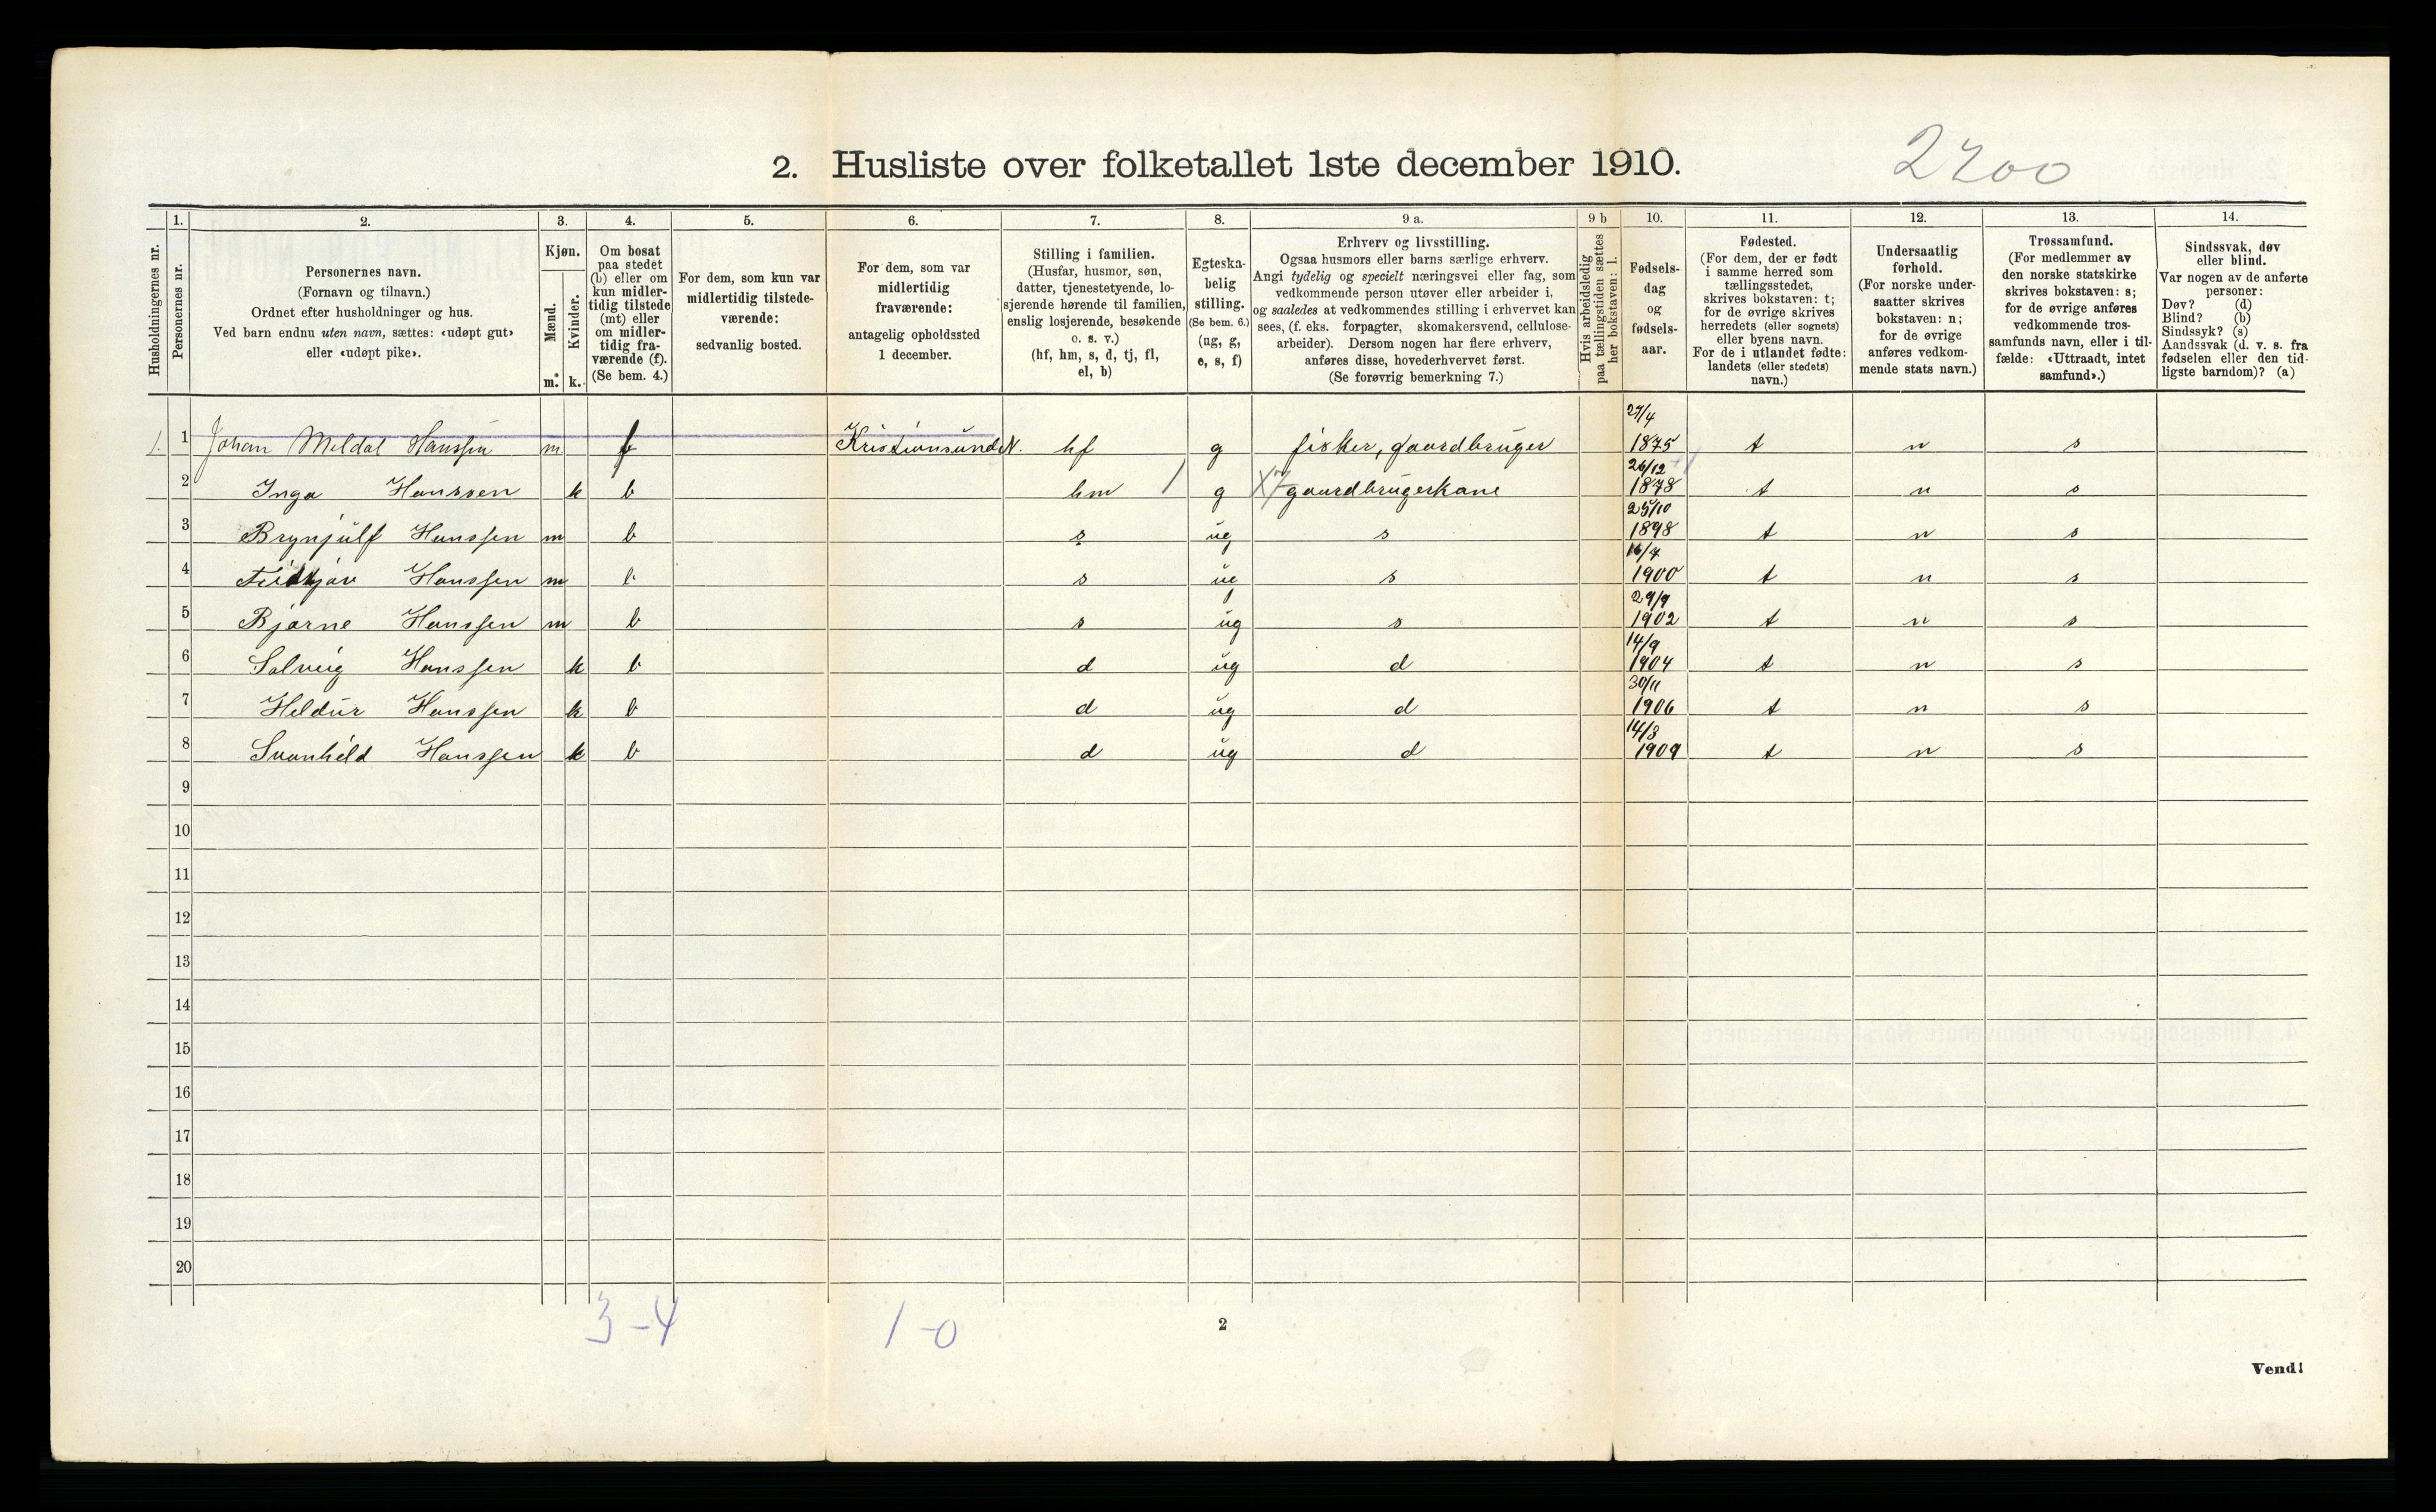 2. Husliste over folketallet 1ste december 1910. 2200
Husholdningernes nr.
1.
Personernes nr.
2.
Personernes navn.
(Fornavn og tilnavn.)
Ordnet efter husholdninger og hus.
Ved barn endnu uten navn, sættes: «udøpt gut»
eller «udøpt pike».
3.
Kjøn.
Mænd.
Kvinder.
m. k.
4.
Om bosat
paa stedet
(b) eller om
kun midler-
tidig tilstede
(mt) eller
om midler-
tidig fra-
værende (f).
(Se bem. 4.)
5.
For dem, som kun var
midlertidig tilstede-
værende:
sedvanlig bosted.
6.
For dem, som var
midlertidig
fraværende:
antagelig opholdssted
1 december.
7.
Stilling i familien.
(Husfar, husmor, søn,
datter, tjenestetyende, lo-
sjerende hørende til familien,
enslig losjerende, besøkende
o. s. v.)
(hf, hm, s, d, tj, fl,
el, b)
8.
Egteska-
belig
stilling.
(Se bem. 6.)
(ug, g,
e, s, f)
9 a.
Erhverv og livsstilling.
Ogsaa husmors eller barns særlige erhverv.
Angi tydelig og specielt næringsvei eller fag, som
vedkommende person utøver eller arbeider i,
og saaledes at vedkommendes stilling i erhvervet kan
sees, (f. eks. forpagter, skomakersvend, cellulose-
arbeider). Dersom nogen har flere erhverv,
anføres disse, hovederhvervet først.
(Se forøvrig bemerkning 7.)
9 b
Hvis arbeidsledig
paa tællingstiden sættes
her bokstaven: l.
10.
Fødsels-
dag
og
fødsels-
aar.
11.
Fødested.
(For dem, der er født
i samme herred som
tællingsstedet,
skrives bokstaven: t;
for de øvrige skrives
herredets (eller sognets)
eller byens navn.
For de i utlandet fødte:
landets (eller stedets)
navn.)
12.
Undersaatlig
forhold.
(For norske under-
saatter skrives
bokstaven: n;
for de øvrige
anføres vedkom-
mende stats navn.)
13.
Trossamfund.
(For medlemmer av
den norske statskirke
skrives bokstaven: s;
for de øvrige anføres
vedkommende tros-
samfunds navn, eller i til-
fælde: «Uttraadt, intet
samfund».)
14.
Sindssvak, døv
eller blind.
Var nogen av de anførte
personer:
Døv? (d)
Blind? (b)
Sindssyk? (s)
Aandssvak (d. v. s. fra
fødselen eller den tid-
ligste barndom)? (a)
1. 1 Johan Meldal Hanssen m f Kristiansund N. hf g fisker, gaardbruger 27/4 1875 t n s
2 Inga Hanssen k b hm g gaardbrugerkone 26/12 1878 t n s
3 Brynjulf Hanssen m b s ug s 25/10 1898 t n s
4 Hanssen m b s ug s 16/7 1900 t n s
5 Bjarne Hanssen m b s ug s 29/9 1902 t n s
6 Solveig Hanssen k b d ug d 14/9 1904 t n s
7 Heldur Hanssen k b d ug d 30/11 1906 t n s
8 Svanhild Hanssen k b d ug d 14/3 1909 t n s
9
10
11
12
13
14
15
16
17
18
19
20
3-4 1-0
2
Vend!